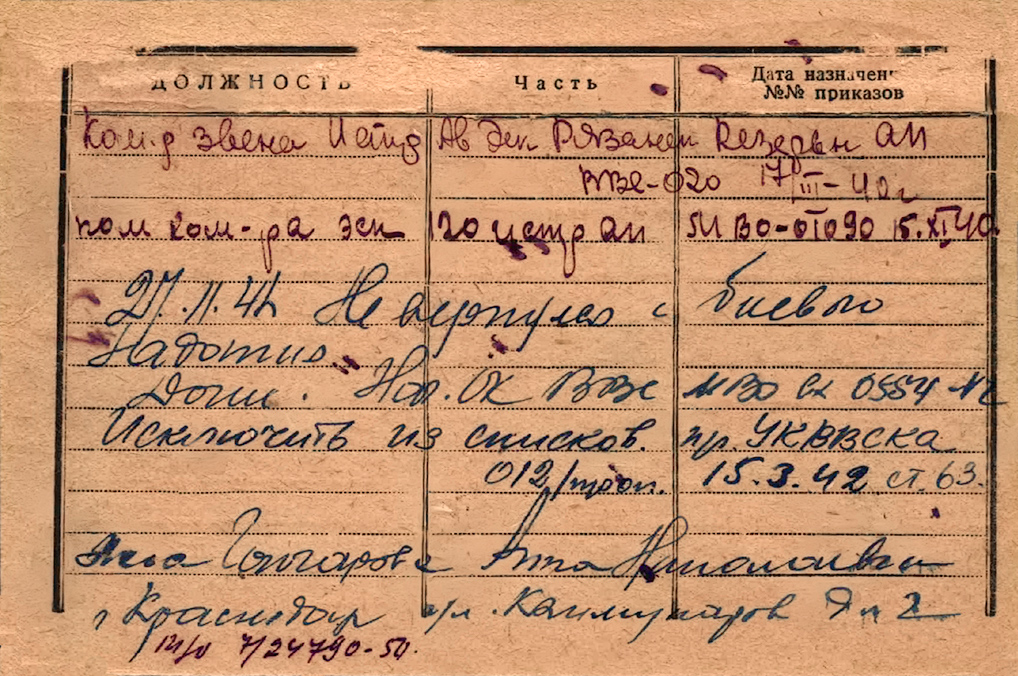 ДОЛЖНОСТЬ Часть Дата назначен
№№ приказов
Ком-р звена Истр Ав Эск Рязанск Резервн АП
ВВС-020 17/III-40г
пом ком-ра эск 120 истр ап МВО-01090 15.XI.40.
27.11.41 Не вернулся с боевого
Надотив
Дон. Нач. ОК ВВС МВО вх 0554
Исключить из списков. пр. УК ВВСКА
012/проп. 15.3.42 ст. 63.
жена Гончарова Анна Николаевна
г Краснодар ул. Коммунаров Д № 2
7/24790-50.